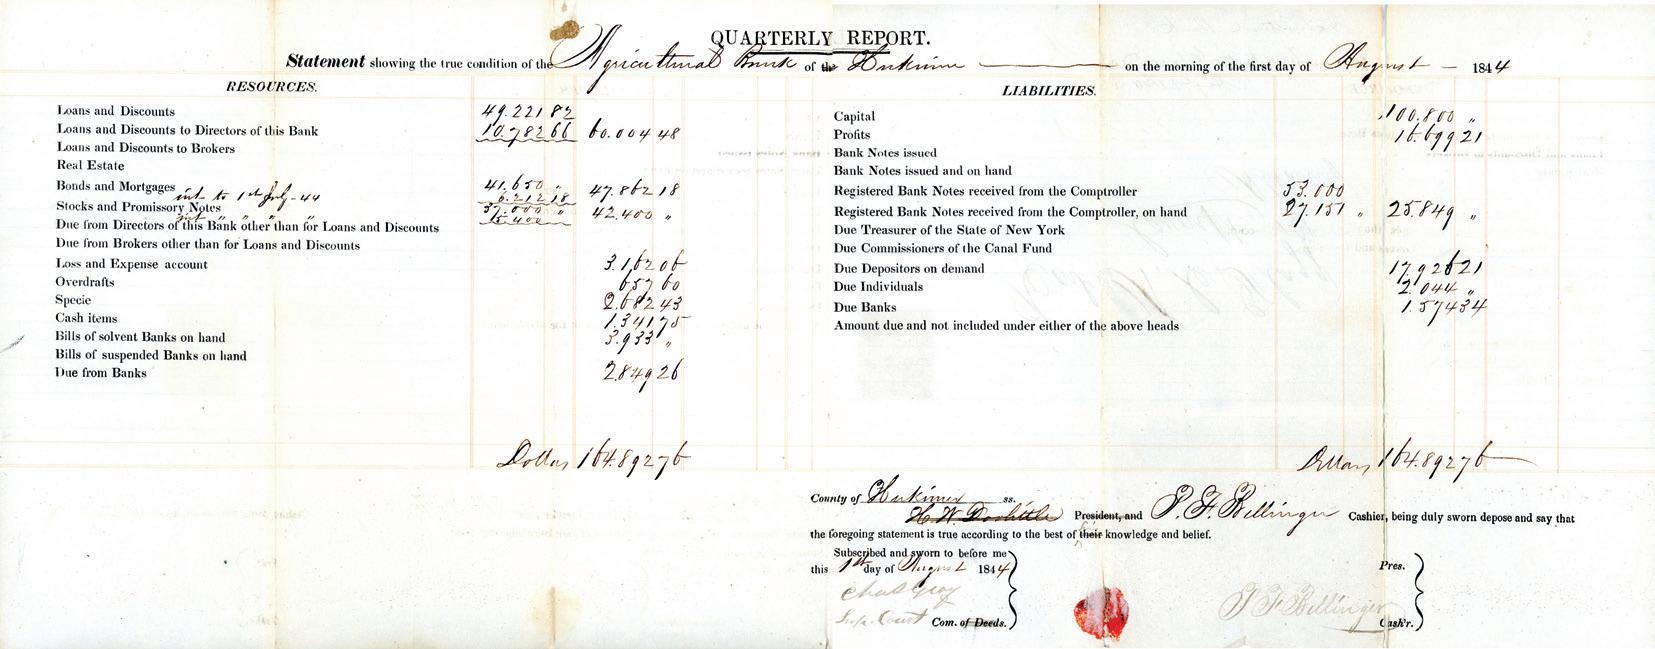 QUARTERLY REPORT.
Statement showing the true condition of the Agricultural Bank of the Herkimer on the morning of the first day of August 1844
RESOURCES.
Loans and Discounts 49.221 82
Loans and Discounts to Directors of this Bank 10.782 66 60.004 48
Loans and Discounts to Brokers
Real Estate
Bonds and Mortgages 41.650 " 47.862 18
int to 1st July - 44 6.212 18
Stocks and Promissory Notes 37.000 " 42.400 "
int " " " " 5.400
Due from Directors of this Bank other than for Loans and Discounts
Due from Brokers other than for Loans and Discounts
Loss and Expense account 3.162 06
Overdrafts 657 60
Specie 2.682 43
Cash items 1.341 75
Bills of solvent Banks on hand 3.933 "
Bills of suspended Banks on hand
Due from Banks 2.849 26
Dollars 164.892 76
LIABILITIES.
Capital 100.800 "
Profits 16.699 21
Bank Notes issued
Bank Notes issued and on hand
Registered Bank Notes received from the Comptroller 53.000
Registered Bank Notes received from the Comptroller, on hand 27.151 " 25.849 "
Due Treasurer of the State of New York
Due Commissioners of the Canal Fund
Due Depositors on demand 17.926 21
Due Individuals 2.044 "
Due Banks 1.574 34
Amount due and not included under either of the above heads
Dollars 164.892 76
County of Herkimer ss.
H. W. Doolittle President, and P. F. Bellinger Cashier, being duly sworn depose and say that
the foregoing statement is true according to the best of their his knowledge and belief.
Subscribed and sworn to before me
this 1st day of August 1844
Chas Gray
Sup. Court Com. of Deeds.
Pres.
P. F. Bellinger
Cash'r.